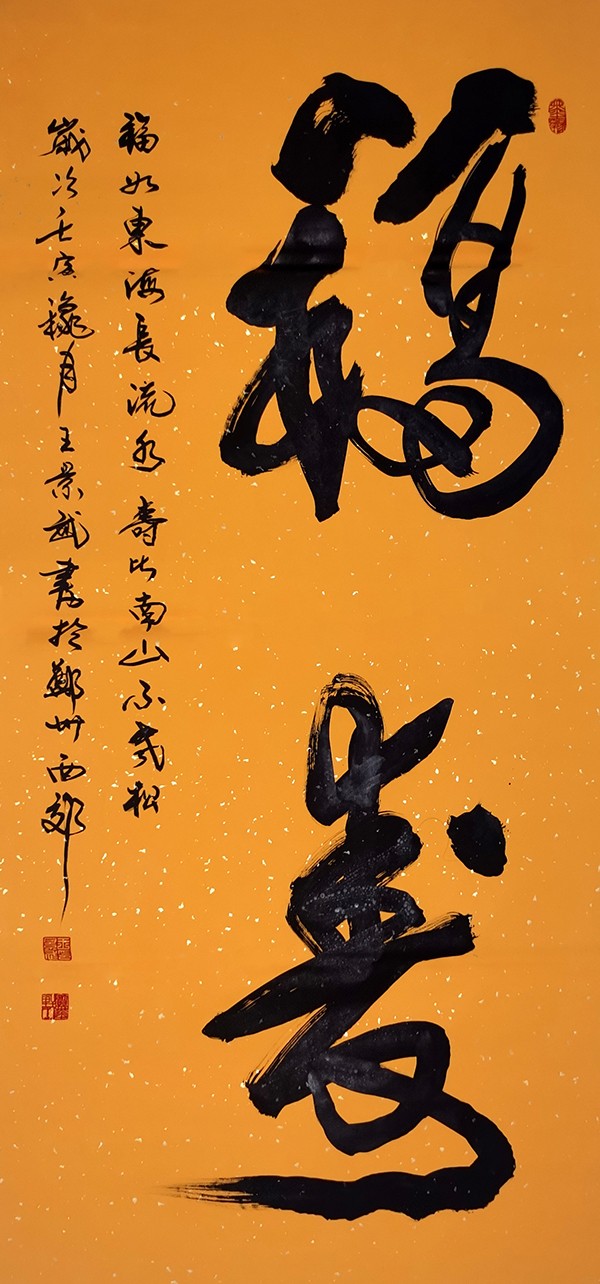 福壽
福如東海長流水壽比南山不老松
歲次壬寅穐月王景斌書於鄭州西郊